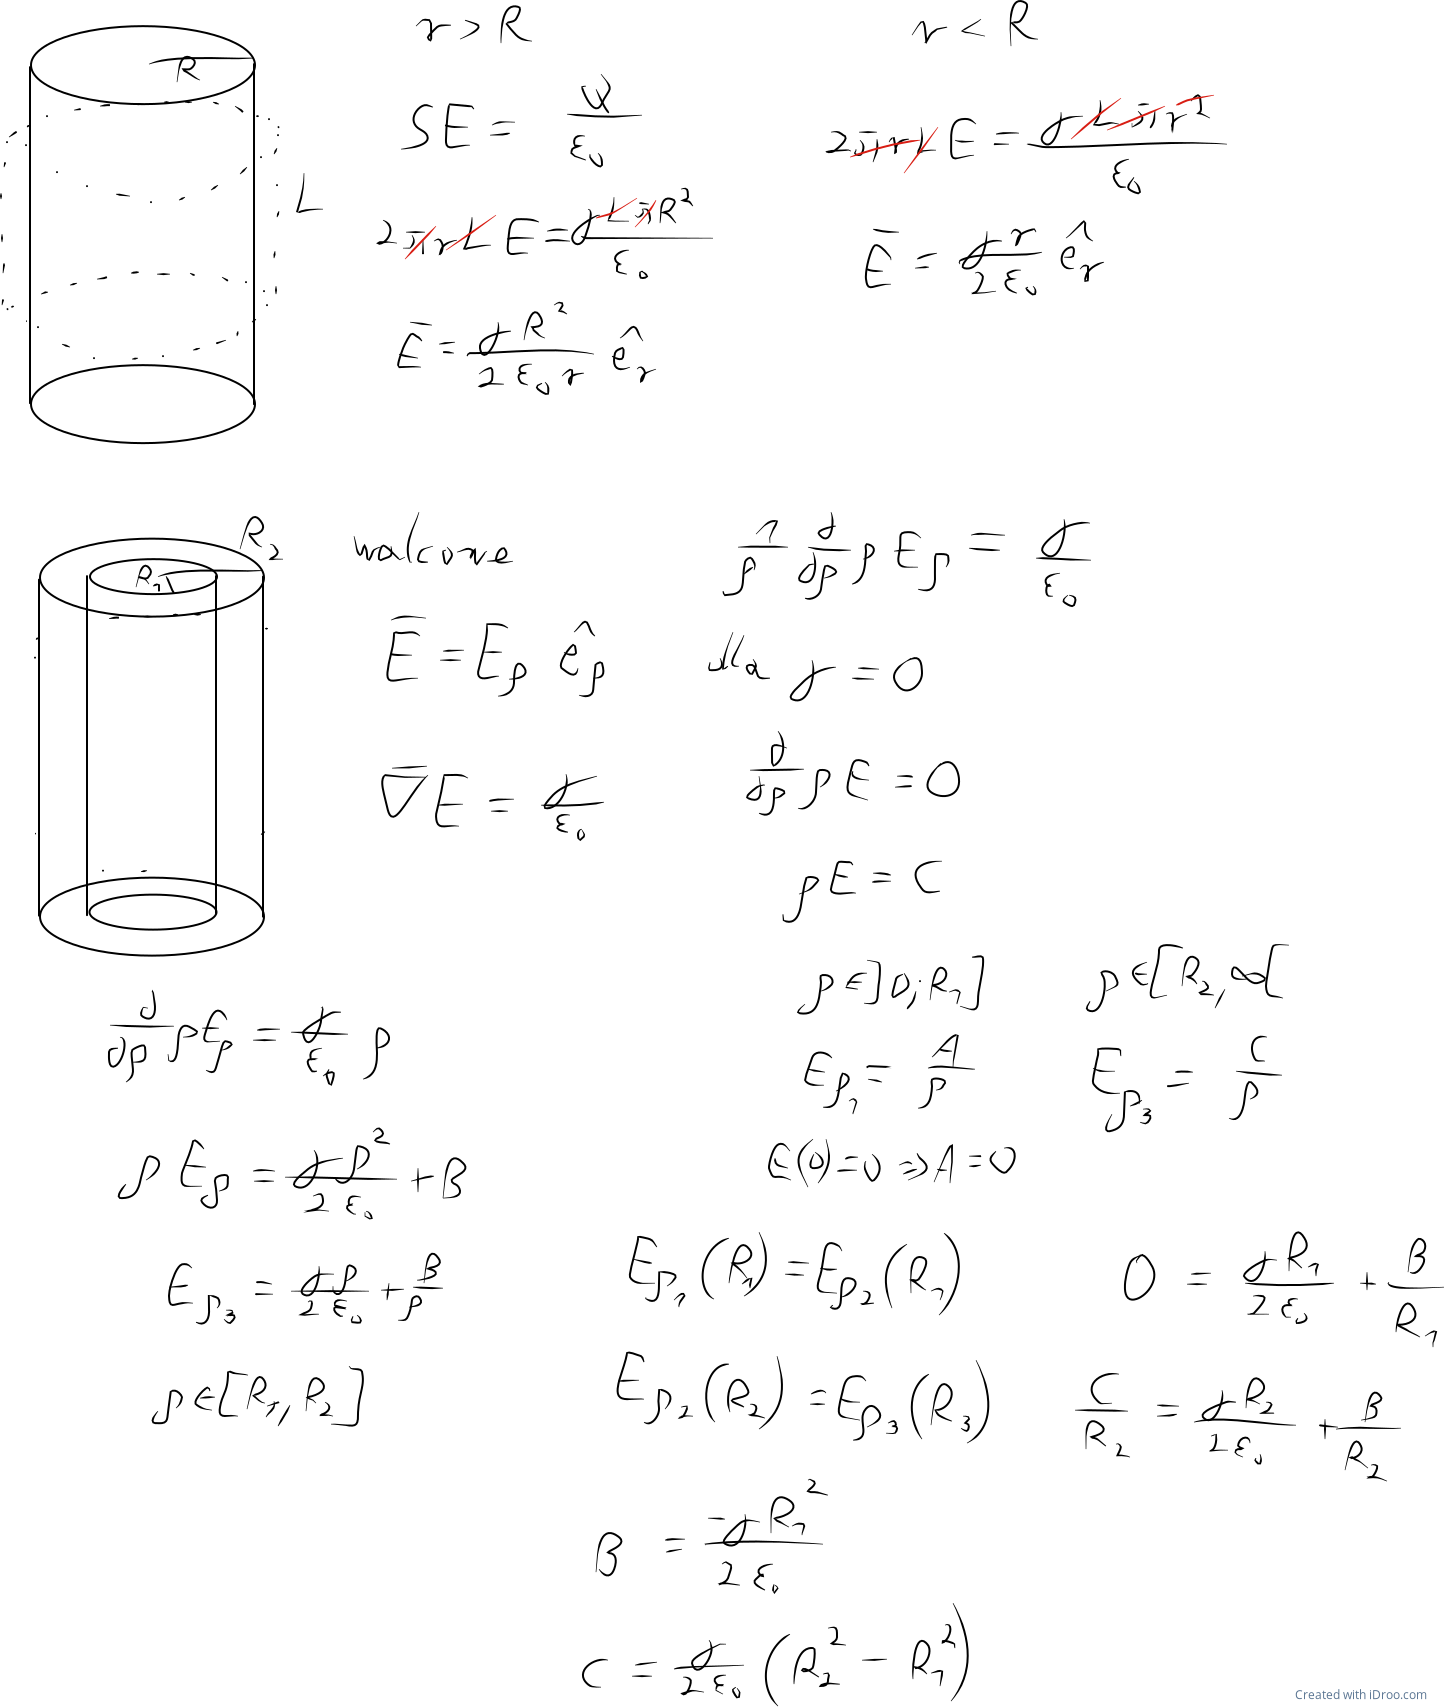 R
L
r > R
SE = Q/ε₀
2πrLE = γLπR²/ε₀
Ē = γR²/(2ε₀r) ê_r
r < R
2πrLE = γLπr²/ε₀
Ē = γr/(2ε₀) ê_r
R₂
R₁
walcowe
Ē = E_ρ ê_ρ
∇̄E = γ/ε₀
1/ρ ∂/∂ρ ρE_ρ = γ/ε₀
dla γ = 0
∂/∂ρ ρE = 0
ρE = C
ρ∈]0;R₁]
E_ρ₁ = A/ρ
E(0)=0 ⇒ A=0
ρ∈[R₂,∞[
E_ρ₃ = C/ρ
∂/∂ρ ρE_ρ = γ/ε₀ ρ
ρE_ρ = γρ²/(2ε₀) + B
E_ρ₃ = γρ/(2ε₀) + B/ρ
ρ∈[R₁,R₂]
E_ρ₁(R₁) = E_ρ₂(R₁)
0 = γR₁/(2ε₀) + B/R₁
E_ρ₂(R₂) = E_ρ₃(R₃)
C/R₂ = γR₂/(2ε₀) + B/R₂
B = -γR₁²/(2ε₀)
C = γ/(2ε₀) (R₂² − R₁²)
Created with iDroo.com